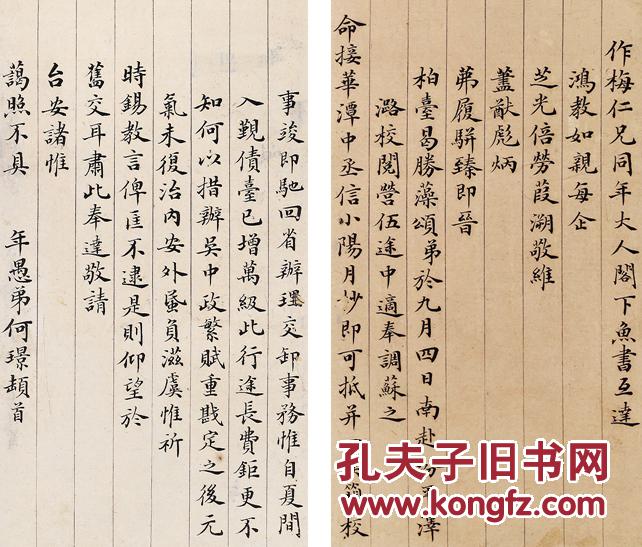 作梅仁兄同年大人閣下魚書互達
鴻教如親每企
芝光倍勞葭溯敬維
藎猷彪炳
茀履駢臻即晉
柏臺曷勝藻頌弟於九月四日南赴 澤
潞校閱營伍途中適奉調蘇之
命接華潭中丞信小陽月杪即可抵并 校
事竣即馳回省辦理交卸事務惟自夏間
入覲債臺已增萬級此行途長費鉅更不
知何以措辦吳中政繁賦重戡定之後元
氣未復治內安外蚤負滋虞惟祈
時錫教言俾匡不逮是則仰望於
舊交耳肅此奉達敬請
台安諸惟
藹照不具 年愚弟何璟頓首
孔夫子旧书网
www.kongfz.com